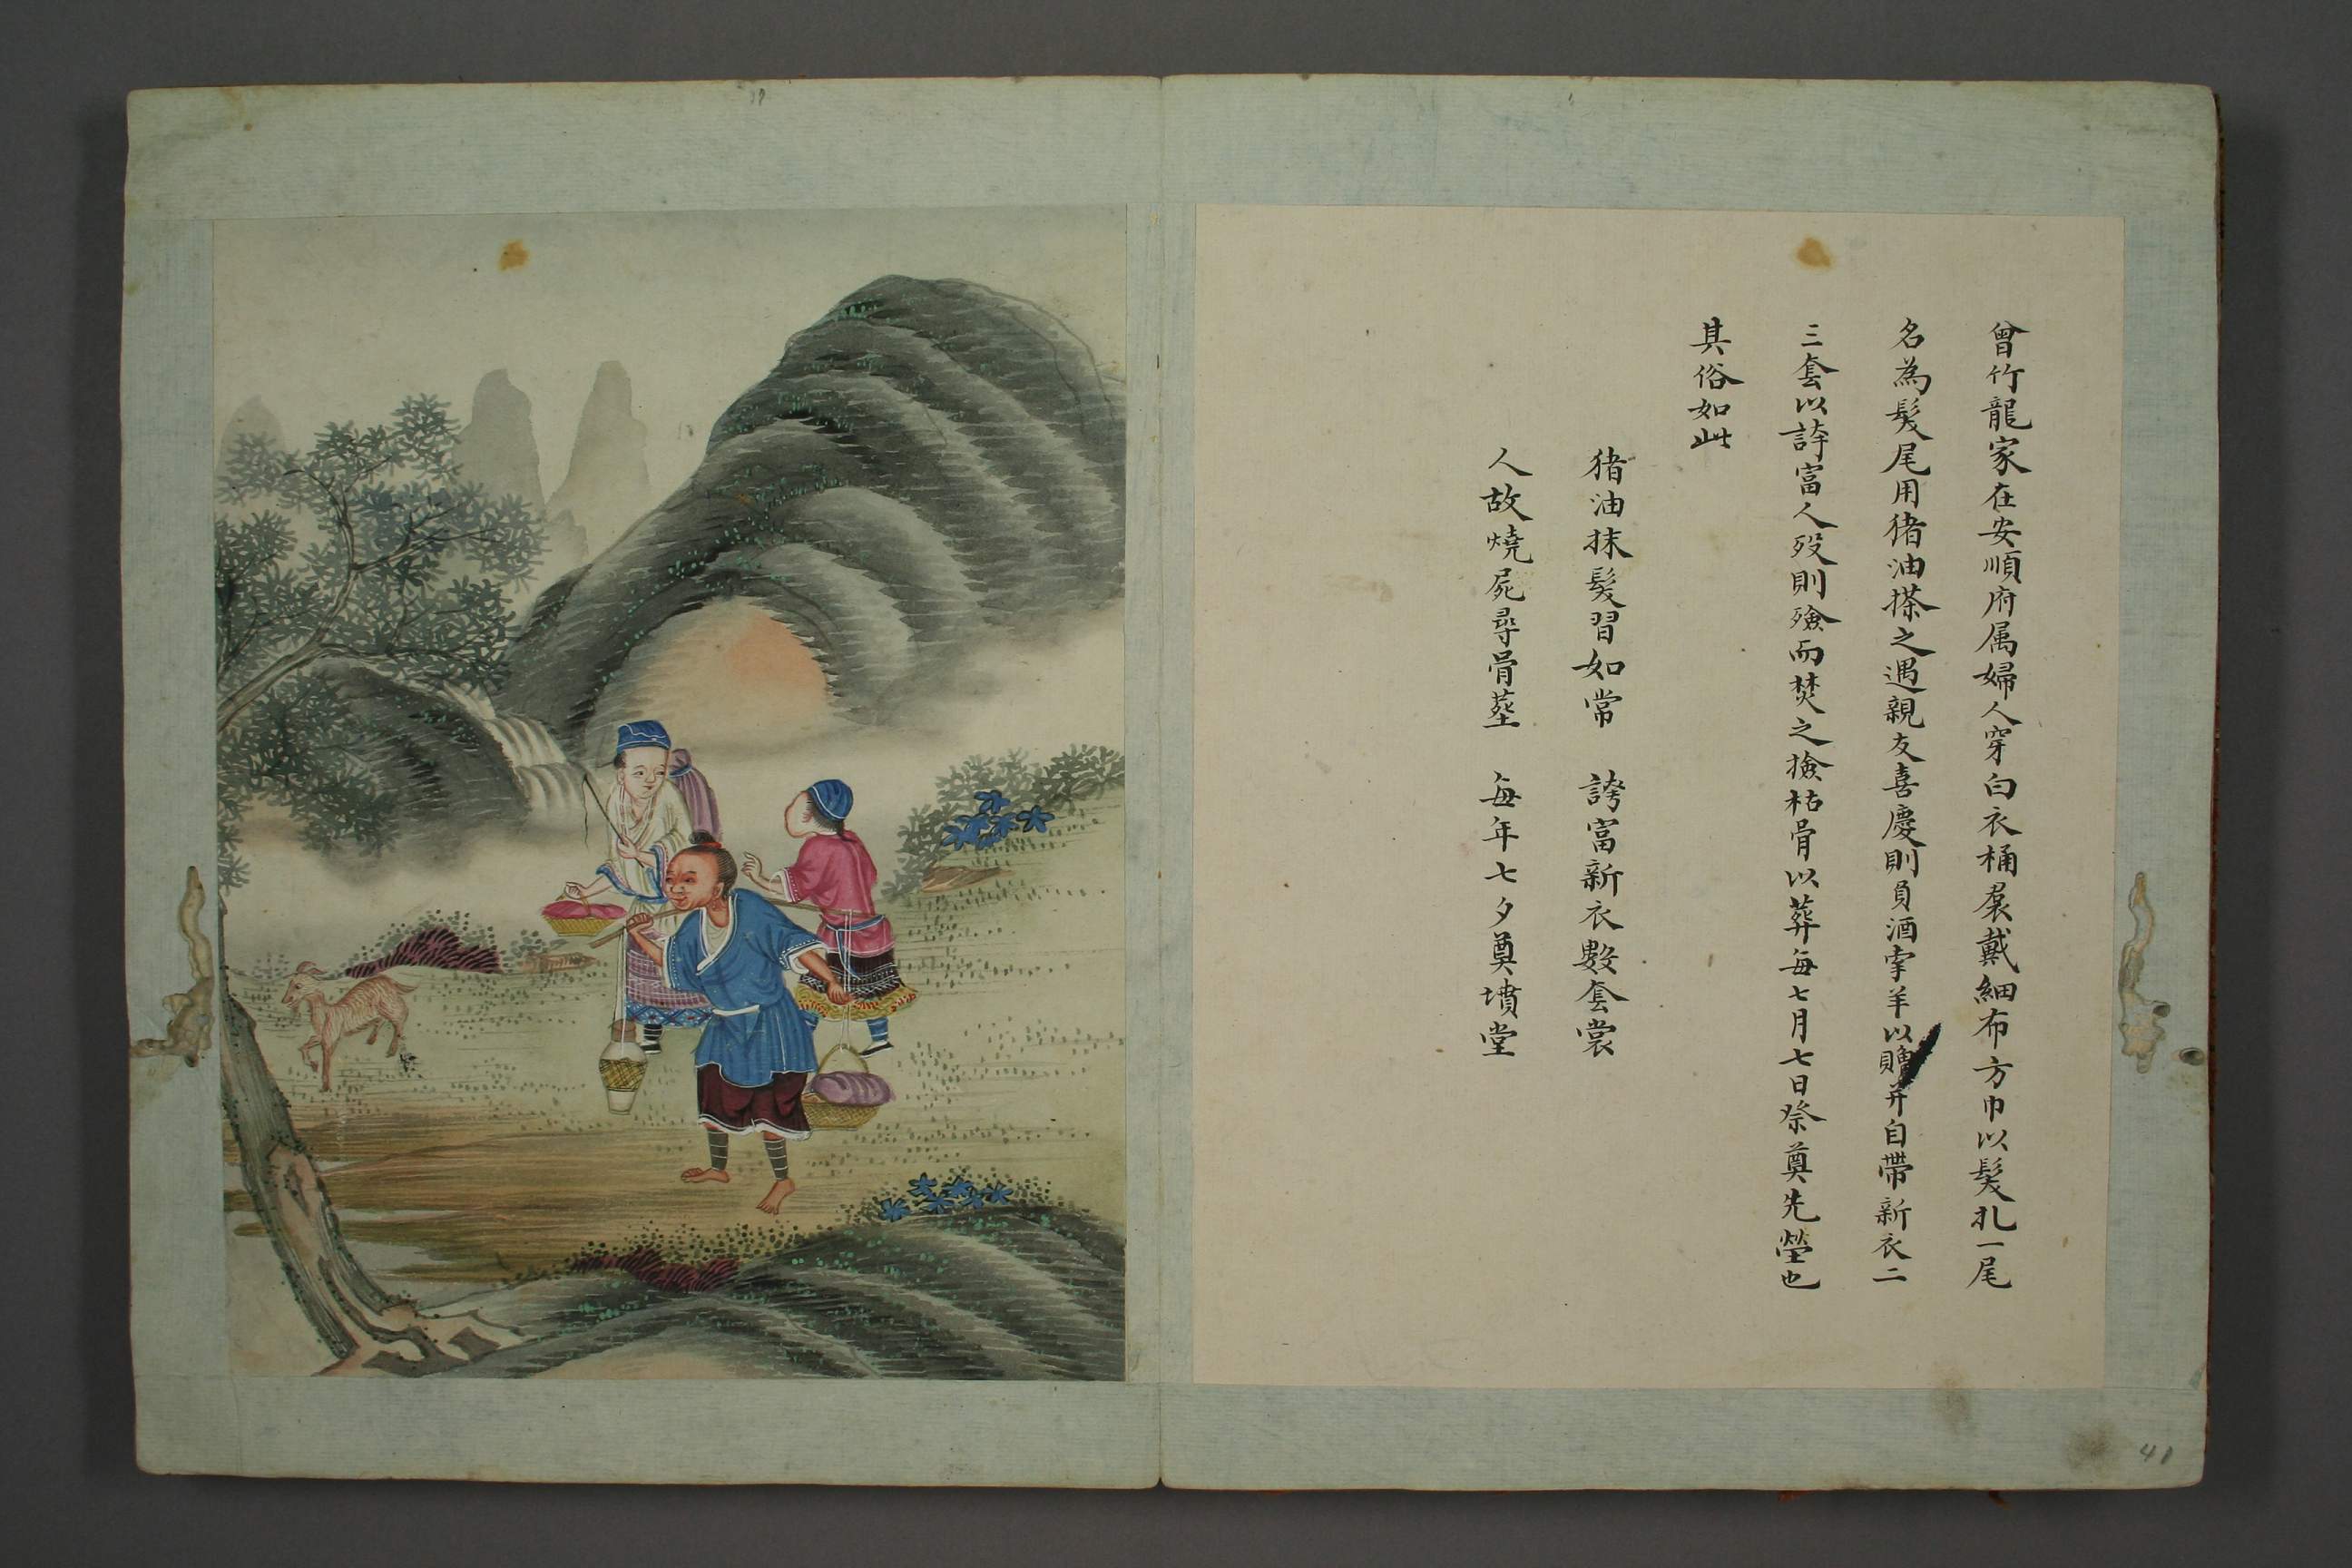 曾竹龍家在安順府属婦人穿白衣桶裠戴細布方巾以髮扎一尾
名為髮尾用猪油搽之遇親友喜慶則負酒牽羊以贈并自帶新衣二
三套以誇富人殁則殮而焚之撿枯骨以葬每七月七日祭奠先塋也
其俗如此
猪油抹髮習如常　誇富新衣數套裳
人故燒屍尋骨塟　每年七夕奠墳堂
41